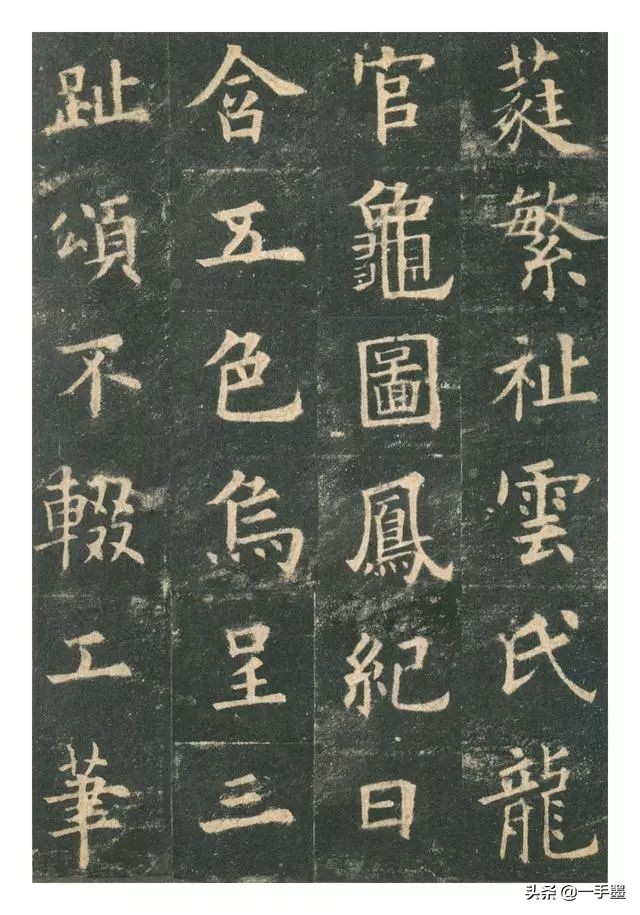 蕤繁祉雲氏龍
官龜圖鳳紀日
含五色烏呈三
趾頌不輟工筆
头条 @一手墨